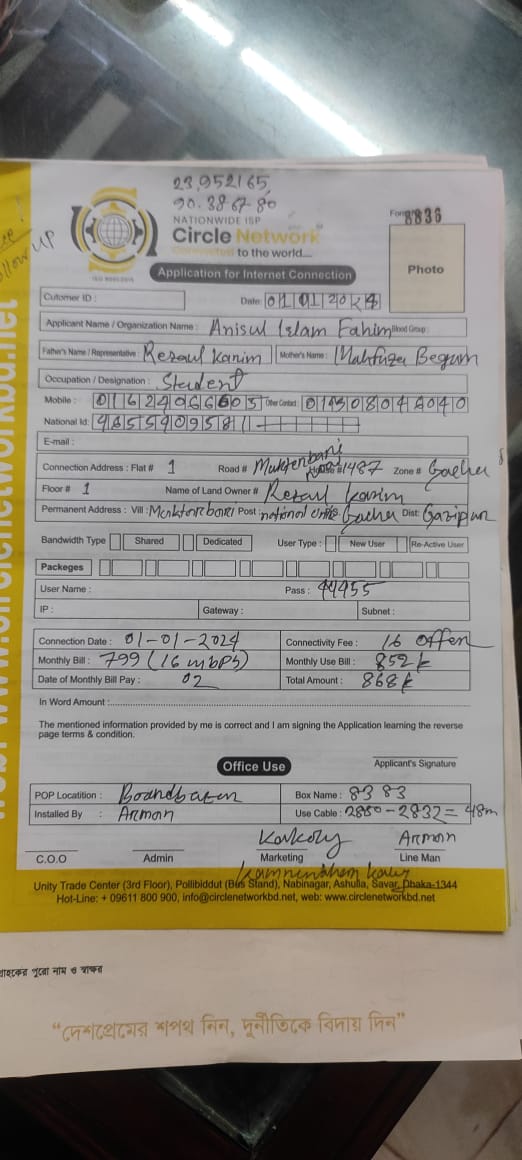 23,952165,
90.3867-80
NATIONWIDE ISP
Circle Network
Connected to the world....
Form 8836
Photo
Application for Internet Connection
Cutomer ID :
Date: 01 01 2024
Applicant Name / Organization Name : Anisul Islam Fahim Blood Group :
Father's Name / Representative : Rezaul Karim Mother's Name : Mahfuza Begum
Occupation / Designation : Student
Mobile : Other Contact :
National Id:
E-mail :
Connection Address : Flat # 1 Road # House # 1487 Zone # Gacha
Floor # 1 Name of Land Owner # Rezaul Karim
Permanent Address : Vill : Post : national Gacha Dist: Gazipur
Bandwidth Type Shared Dedicated User Type : New User Re-Active User
Packeges
User Name : Pass : 44455
IP : Gateway : Subnet :
Connection Date : 01-01-2024 Connectivity Fee : 16 Offer
Monthly Bill : 799 (16 mbps) Monthly Use Bill : 852
Date of Monthly Bill Pay : 02 Total Amount : 868
In Word Amount :
The mentioned information provided by me is correct and I am signing the Application learning the reverse
page terms & condition.
Applicant's Signature
Office Use
POP Locatition : Boardbazar Box Name : 8383
Installed By : Arman Use Cable : 2880-2832= 48m
Kakoly Arman
C.O.O Admin Marketing Line Man
Unity Trade Center (3rd Floor), Pollibiddut (Bus Stand), Nabinagar, Ashulia, Savar, Dhaka-1344
Hot-Line: + 09611 800 900, info@circlenetworkbd.net, web: www.circlenetworkbd.net
গ্রাহকের পুরো নাম ও স্বাক্ষর
“দেশপ্রেমের শপথ নিন, দুর্নীতিকে বিদায় দিন”